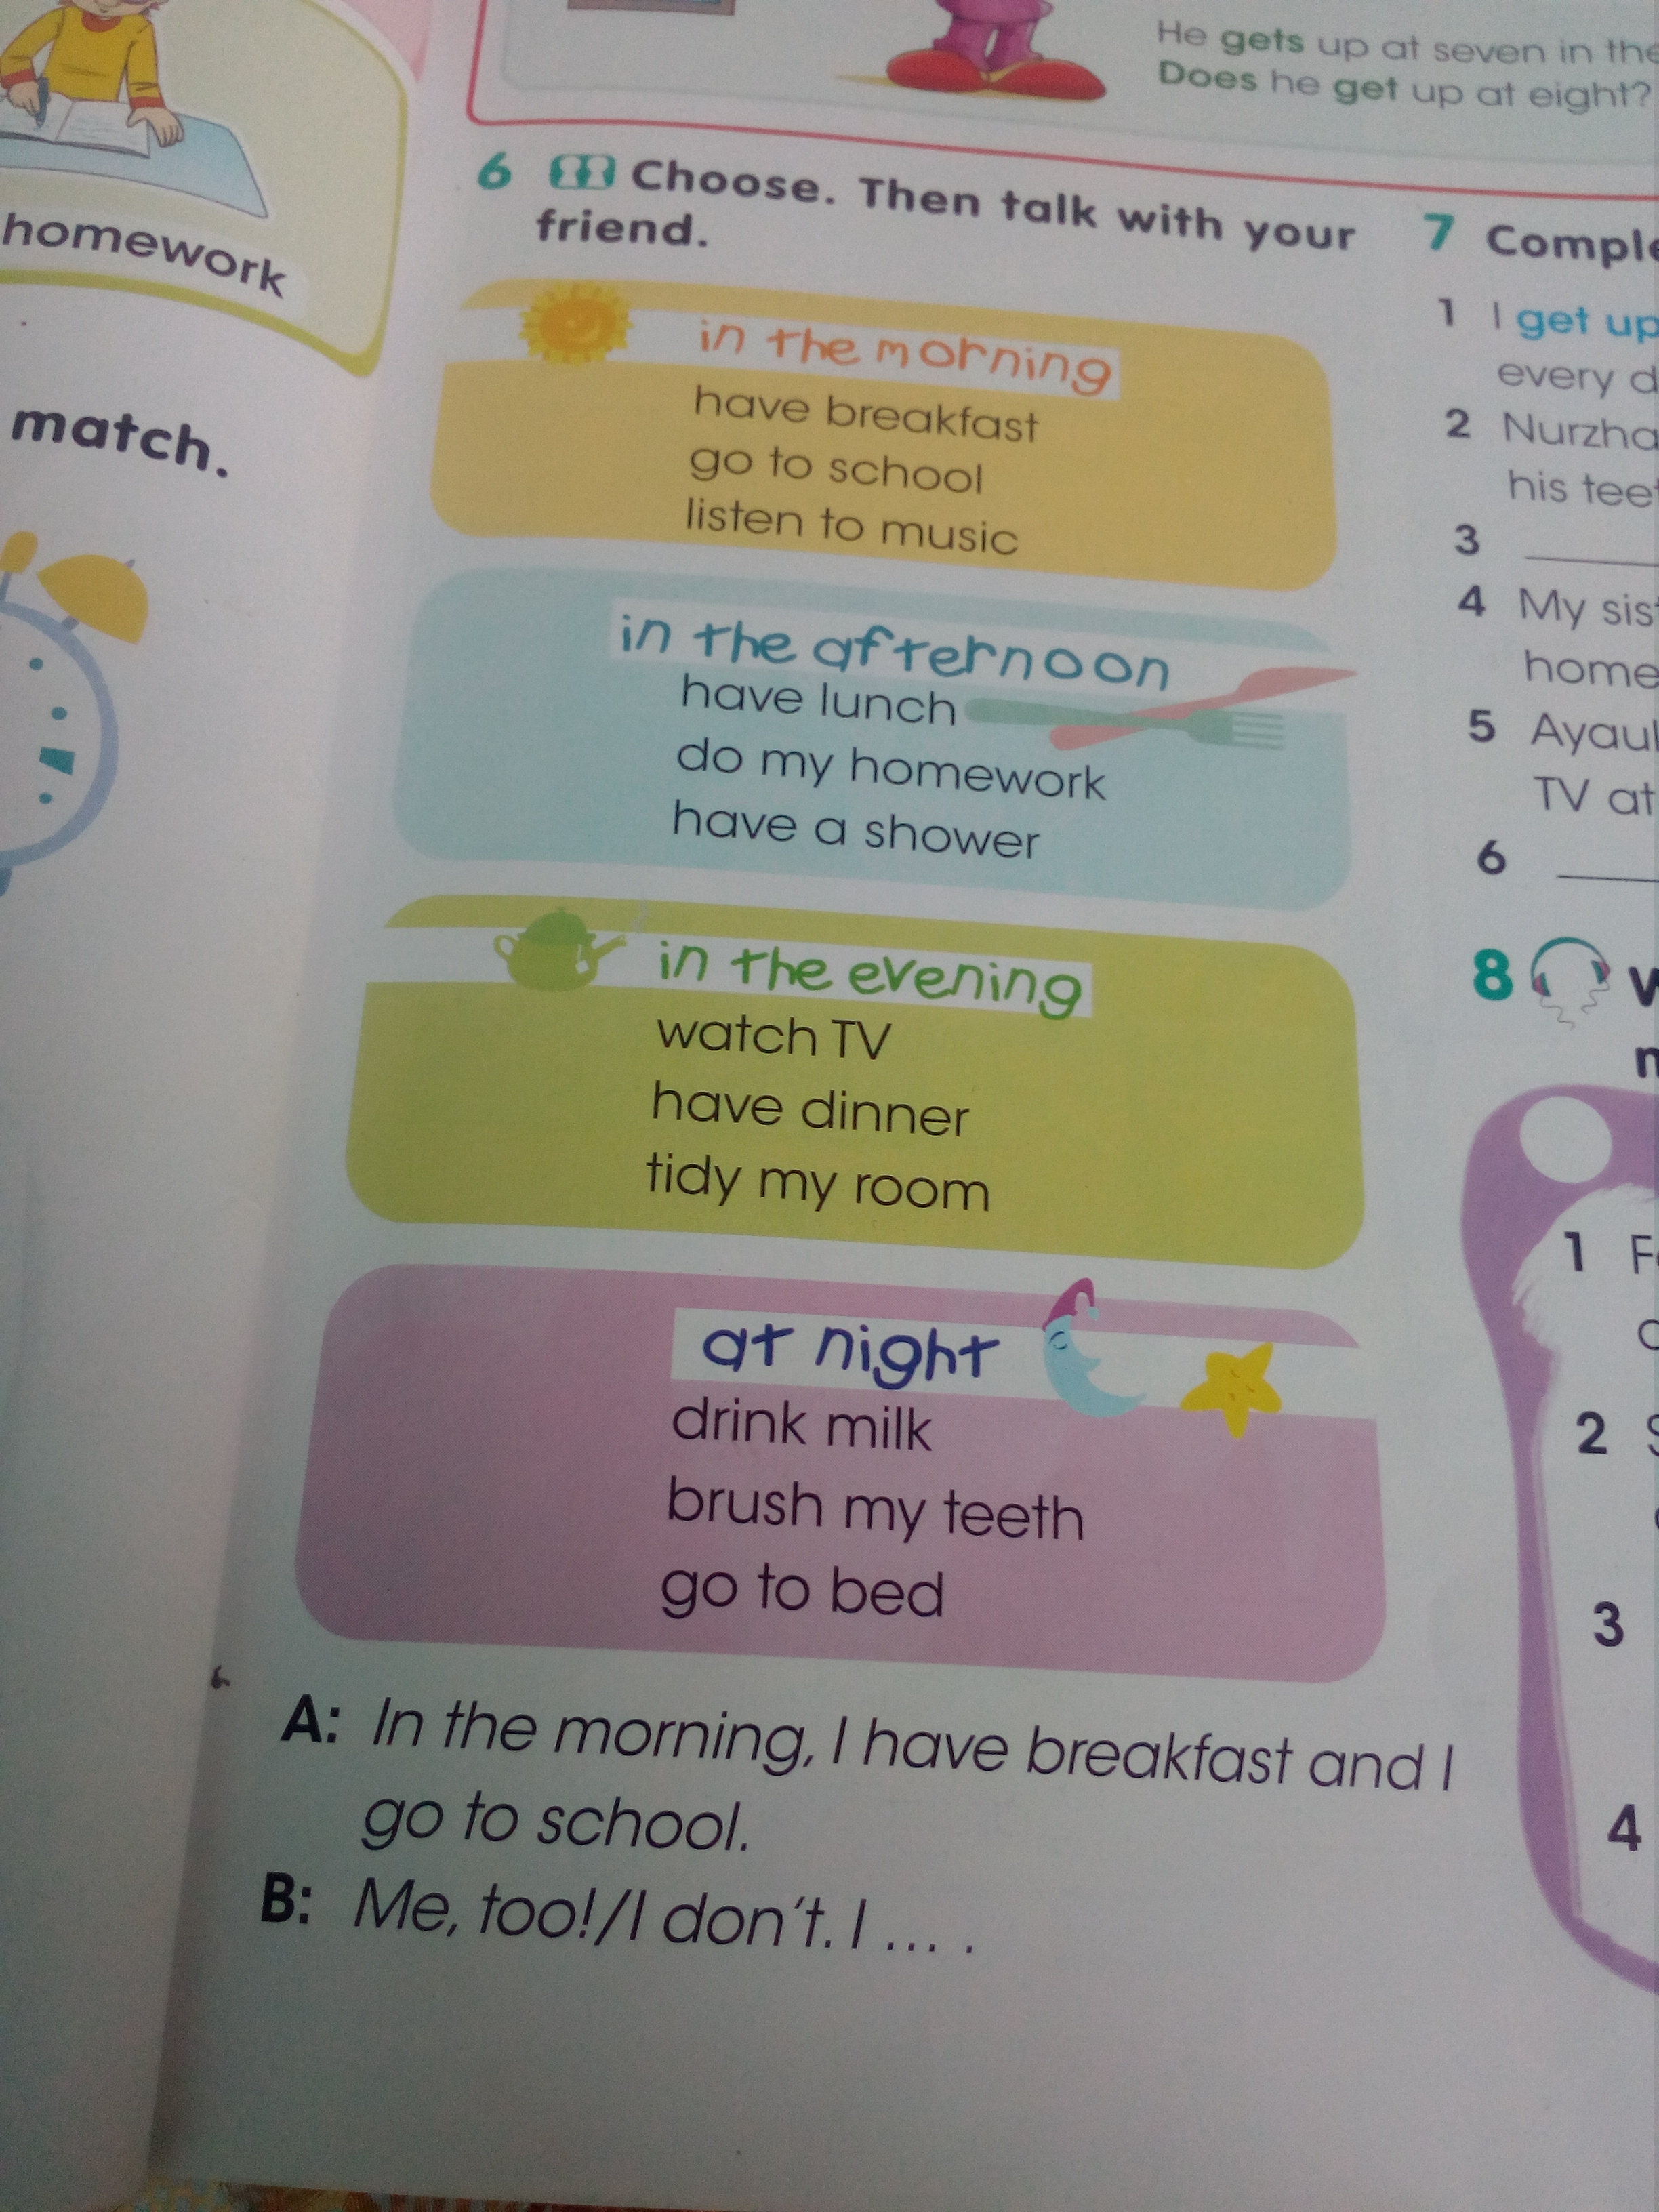 homework
match.
He gets up at seven in the
Does he get up at eight?
6 Choose. Then talk with your
friend.
in the morning
have breakfast
go to school
listen to music
in the afternoon
have lunch
do my homework
have a shower
in the evening
watch TV
have dinner
tidy my room
at night
drink milk
brush my teeth
go to bed
A: In the morning, I have breakfast and I
go to school.
B: Me, too!/I don't. I ... .
7
1 I get up
every
2
his
3
4 My
5
TV at
6
8
1
2
3
4